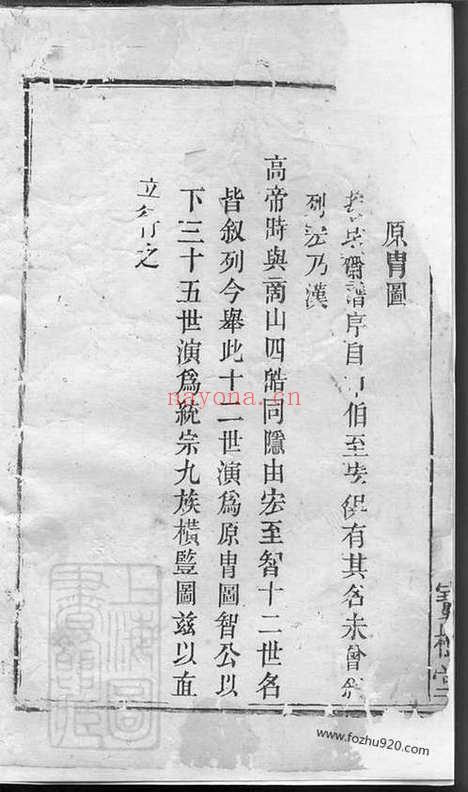 原胄圖
齋譜序自 伯至 俱有其名未曾
列宏乃漢
高帝時與商山四皓同隱由宏至智十二世名
皆叙列今舉此十二世演爲原胄圖智公以
下三十五世演爲統宗九族橫豎圖兹以直
立行之
nayona.cn
上海圖書館藏
www.fozhu920.com